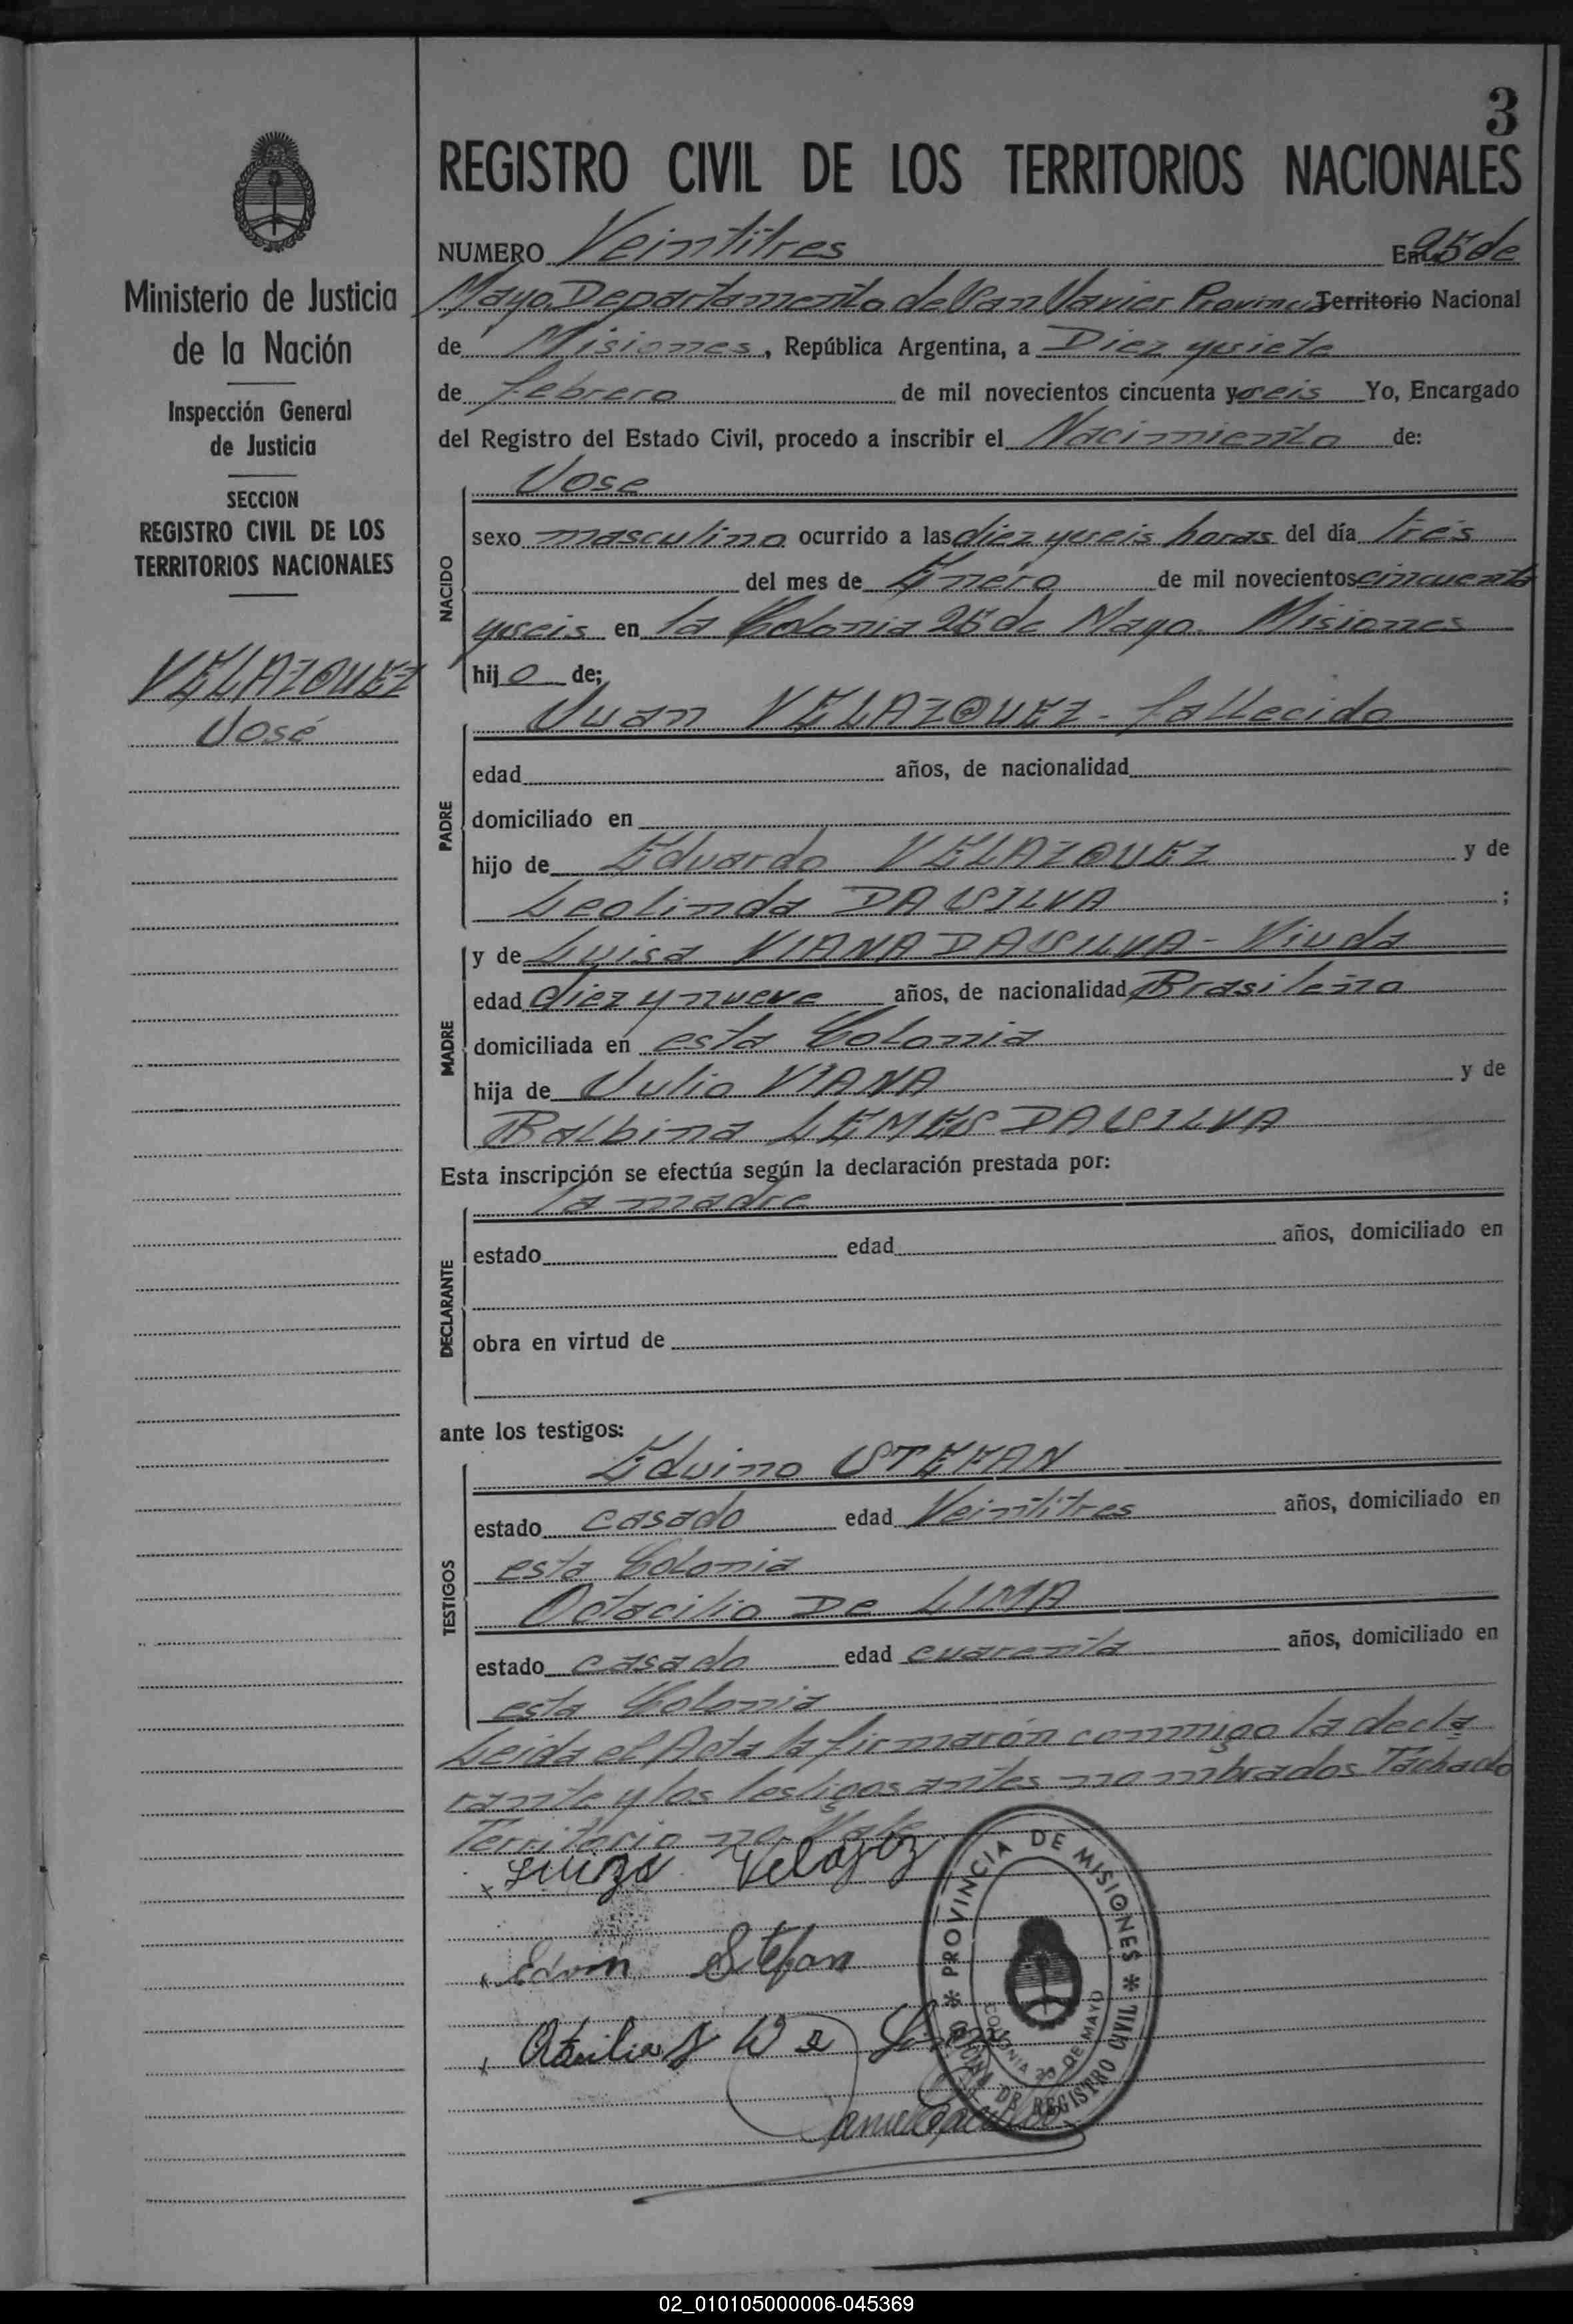 3
REGISTRO CIVIL DE LOS TERRITORIOS NACIONALES
Ministerio de Justicia
de la Nación
Inspección General
de Justicia
SECCION
REGISTRO CIVIL DE LOS
TERRITORIOS NACIONALES
VELAZQUEZ
José
NUMERO Veintitres En 25 de
Mayo, Departamento de San Javier Provincia Territorio Nacional
de Misiones, República Argentina, a Diez y siete
de febrero de mil novecientos cincuenta y seis Yo, Encargado
del Registro del Estado Civil, procedo a inscribir el Nacimiento de:
NACIDO
Jose
sexo masculino ocurrido a las diez y seis horas del día tres
del mes de Enero de mil novecientos cincuenta
y seis en la Colonia 25 de Mayo. Misiones
hijo de;
PADRE
Juan VELAZQUEZ - fallecido
edad años, de nacionalidad
domiciliado en
hijo de Eduardo VELAZQUEZ y de
Leolinda DA SILVA ;
MADRE
y de Luisa VIANA DA SILVA - Viuda
edad diez y nueve años, de nacionalidad Brasileña
domiciliada en esta Colonia
hija de Julio VIANA y de
Balbina LEMES DA SILVA
Esta inscripción se efectúa según la declaración prestada por:
DECLARANTE
la madre
estado edad años, domiciliado en
obra en virtud de
ante los testigos:
TESTIGOS
Eduino STEFAN
estado casado edad Veintitres años, domiciliado en
esta Colonia
Octacilio De LIMA
estado casado edad cuarenta años, domiciliado en
esta Colonia
Leida el Acta la firmarón conmigo la decla
rante y los testigos antes nombrados Tachado
Territorio no Vale
x Luiza Velazez
x Edvin Stefan
x De Lima
* PROVINCIA DE MISIONES *
OFICINA DE REGISTRO CIVIL
COLONIA 25 DE MAYO
02_010105000006-045369